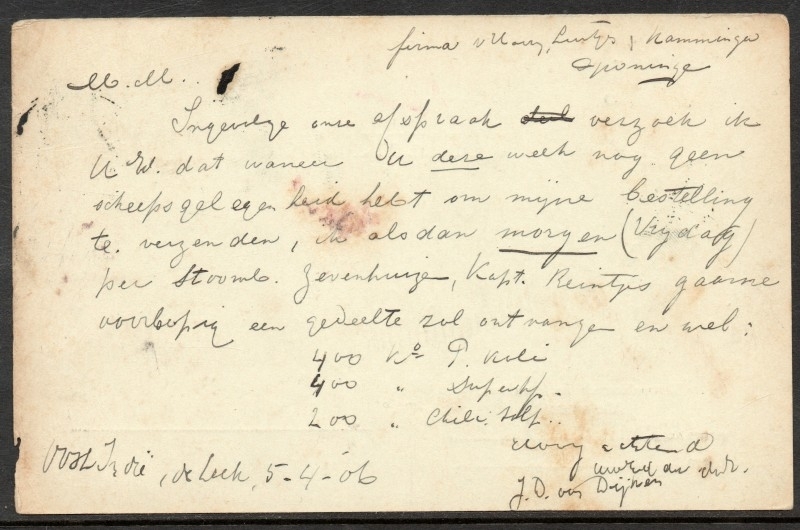 firma v Werf, Luitjes & Kamminga
Groninge
M. M.
Ingevolge onze afspraak verzoek ik
U Ed. dat waneer U deze week nog geen
scheepsgelegenheid hebt om mijne bestelling
te verzenden, ik alsdan morgen (Vrijdag)
per Stoomb. Zevenhuizen, Kapt. Reintjes gaarne
voorloopig een gedeelte zal ontvangen en wel:
400 Ko P. Kali
400 " Superf.
200 " Chili Salp.
Hoogachtend
J. D. van Dijken
Oost Indië, de Leek, 5-4-06